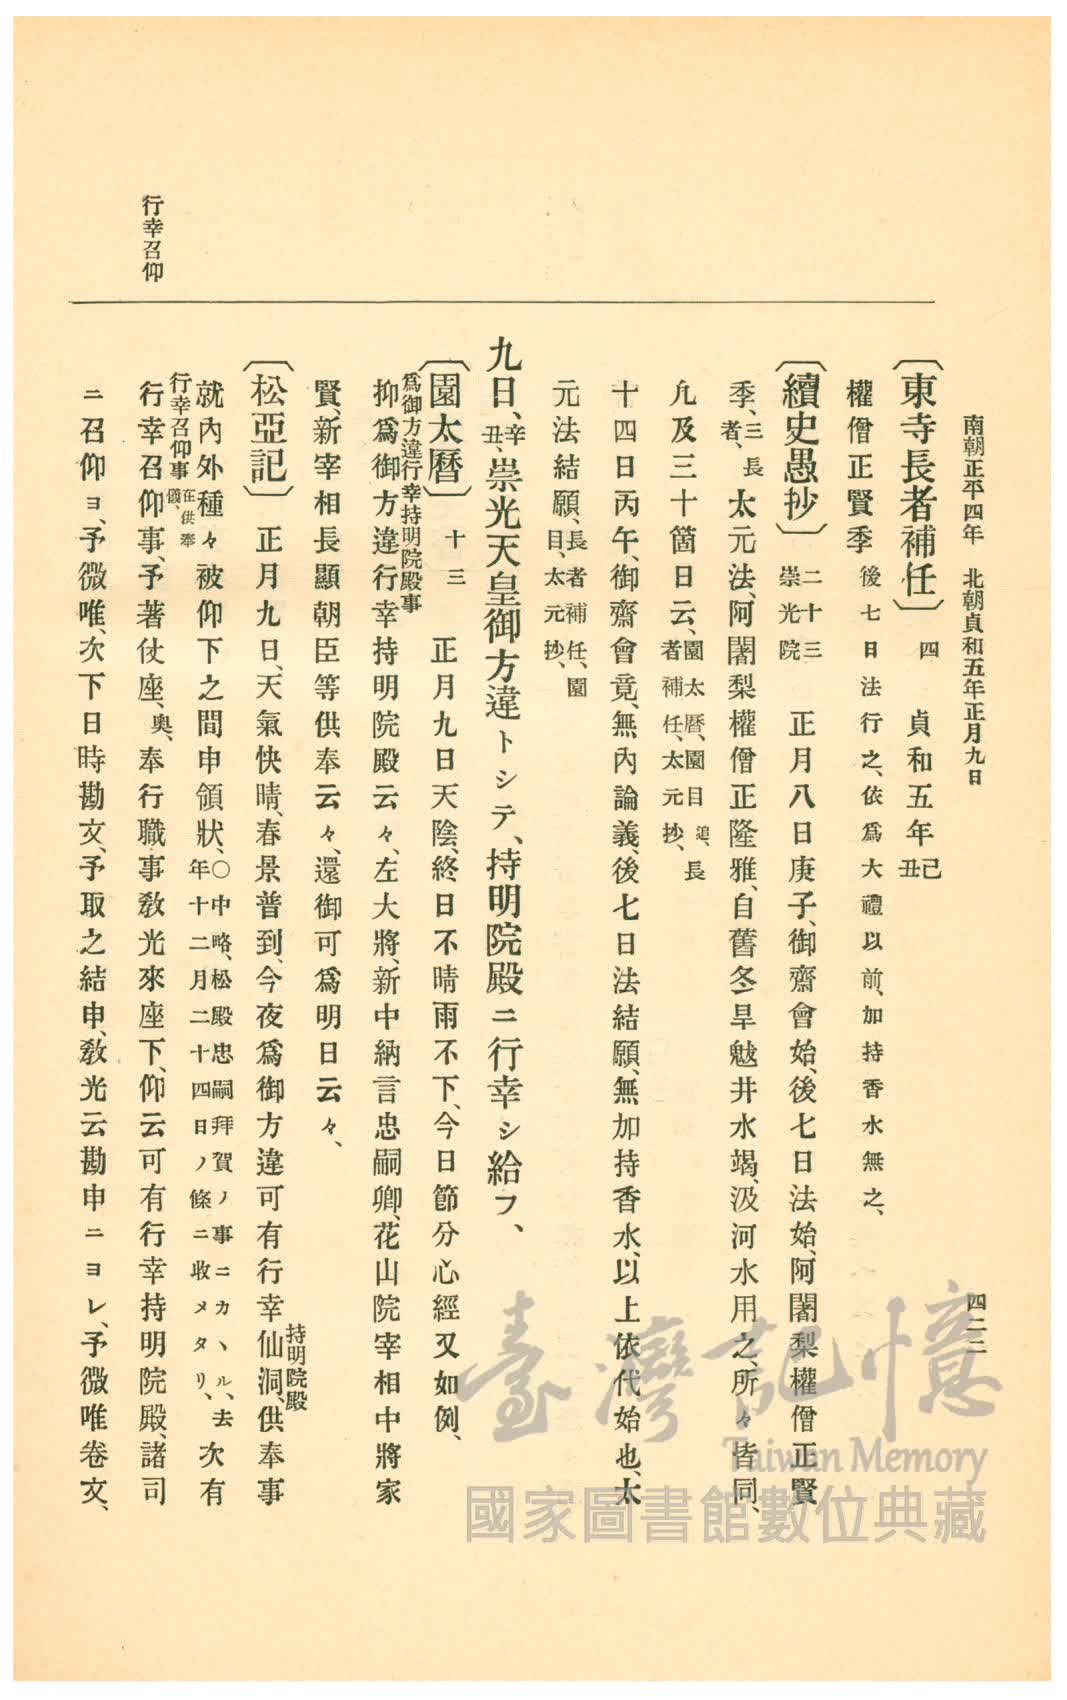 南朝正平四年　北朝貞和五年正月九日
四二二
〔東寺長者補任〕四　貞和五年己丑
權僧正賢季後七日法行之、依爲大禮以前、加持香水無之、
〔續史愚抄〕二十三崇光院　正月八日庚子、御齋會始、後七日法始、阿闍梨權僧正賢
季、三長者、太元法、阿闍梨權僧正隆雅、自舊冬旱魃井水竭、汲河水用之、所々皆同、
凡及三十箇日云、園太曆、園目追、長者補任、太元抄、
十四日丙午、御齋會竟、無內論義、後七日法結願、無加持香水、以上依代始也、太
元法結願、長者補任、園目、太元抄、
九日、辛丑、崇光天皇御方違トシテ、持明院殿ニ行幸シ給フ、
〔園太曆〕十三　正月九日天陰、終日不晴雨不下、今日節分心經又如例、
爲御方違行幸持明院殿事
抑爲御方違行幸持明院殿云々、左大將、新中納言忠嗣卿、花山院宰相中將家
賢、新宰相長顯朝臣等供奉云々、還御可爲明日云々、
〔松亞記〕正月九日、天氣快晴、春景普到、今夜爲御方違可有行幸仙洞、供奉事
持明院殿
就內外種々被仰下之間申領狀、〇中略、松殿忠嗣拜賀ノ事ニカヽル、去年十二月二十四日ノ條ニ收メタリ、次有
行幸召仰事在供奉儀、
行幸召仰事、予著仗座、奧、奉行職事敎光來座下、仰云可有行幸持明院殿、諸司
ニ召仰ヨ、予微唯、次下日時勘文、予取之結申、敎光云勘申ニヨレ、予微唯卷文、
行幸召仰
臺灣記憶
Taiwan Memory
國家圖書館數位典藏